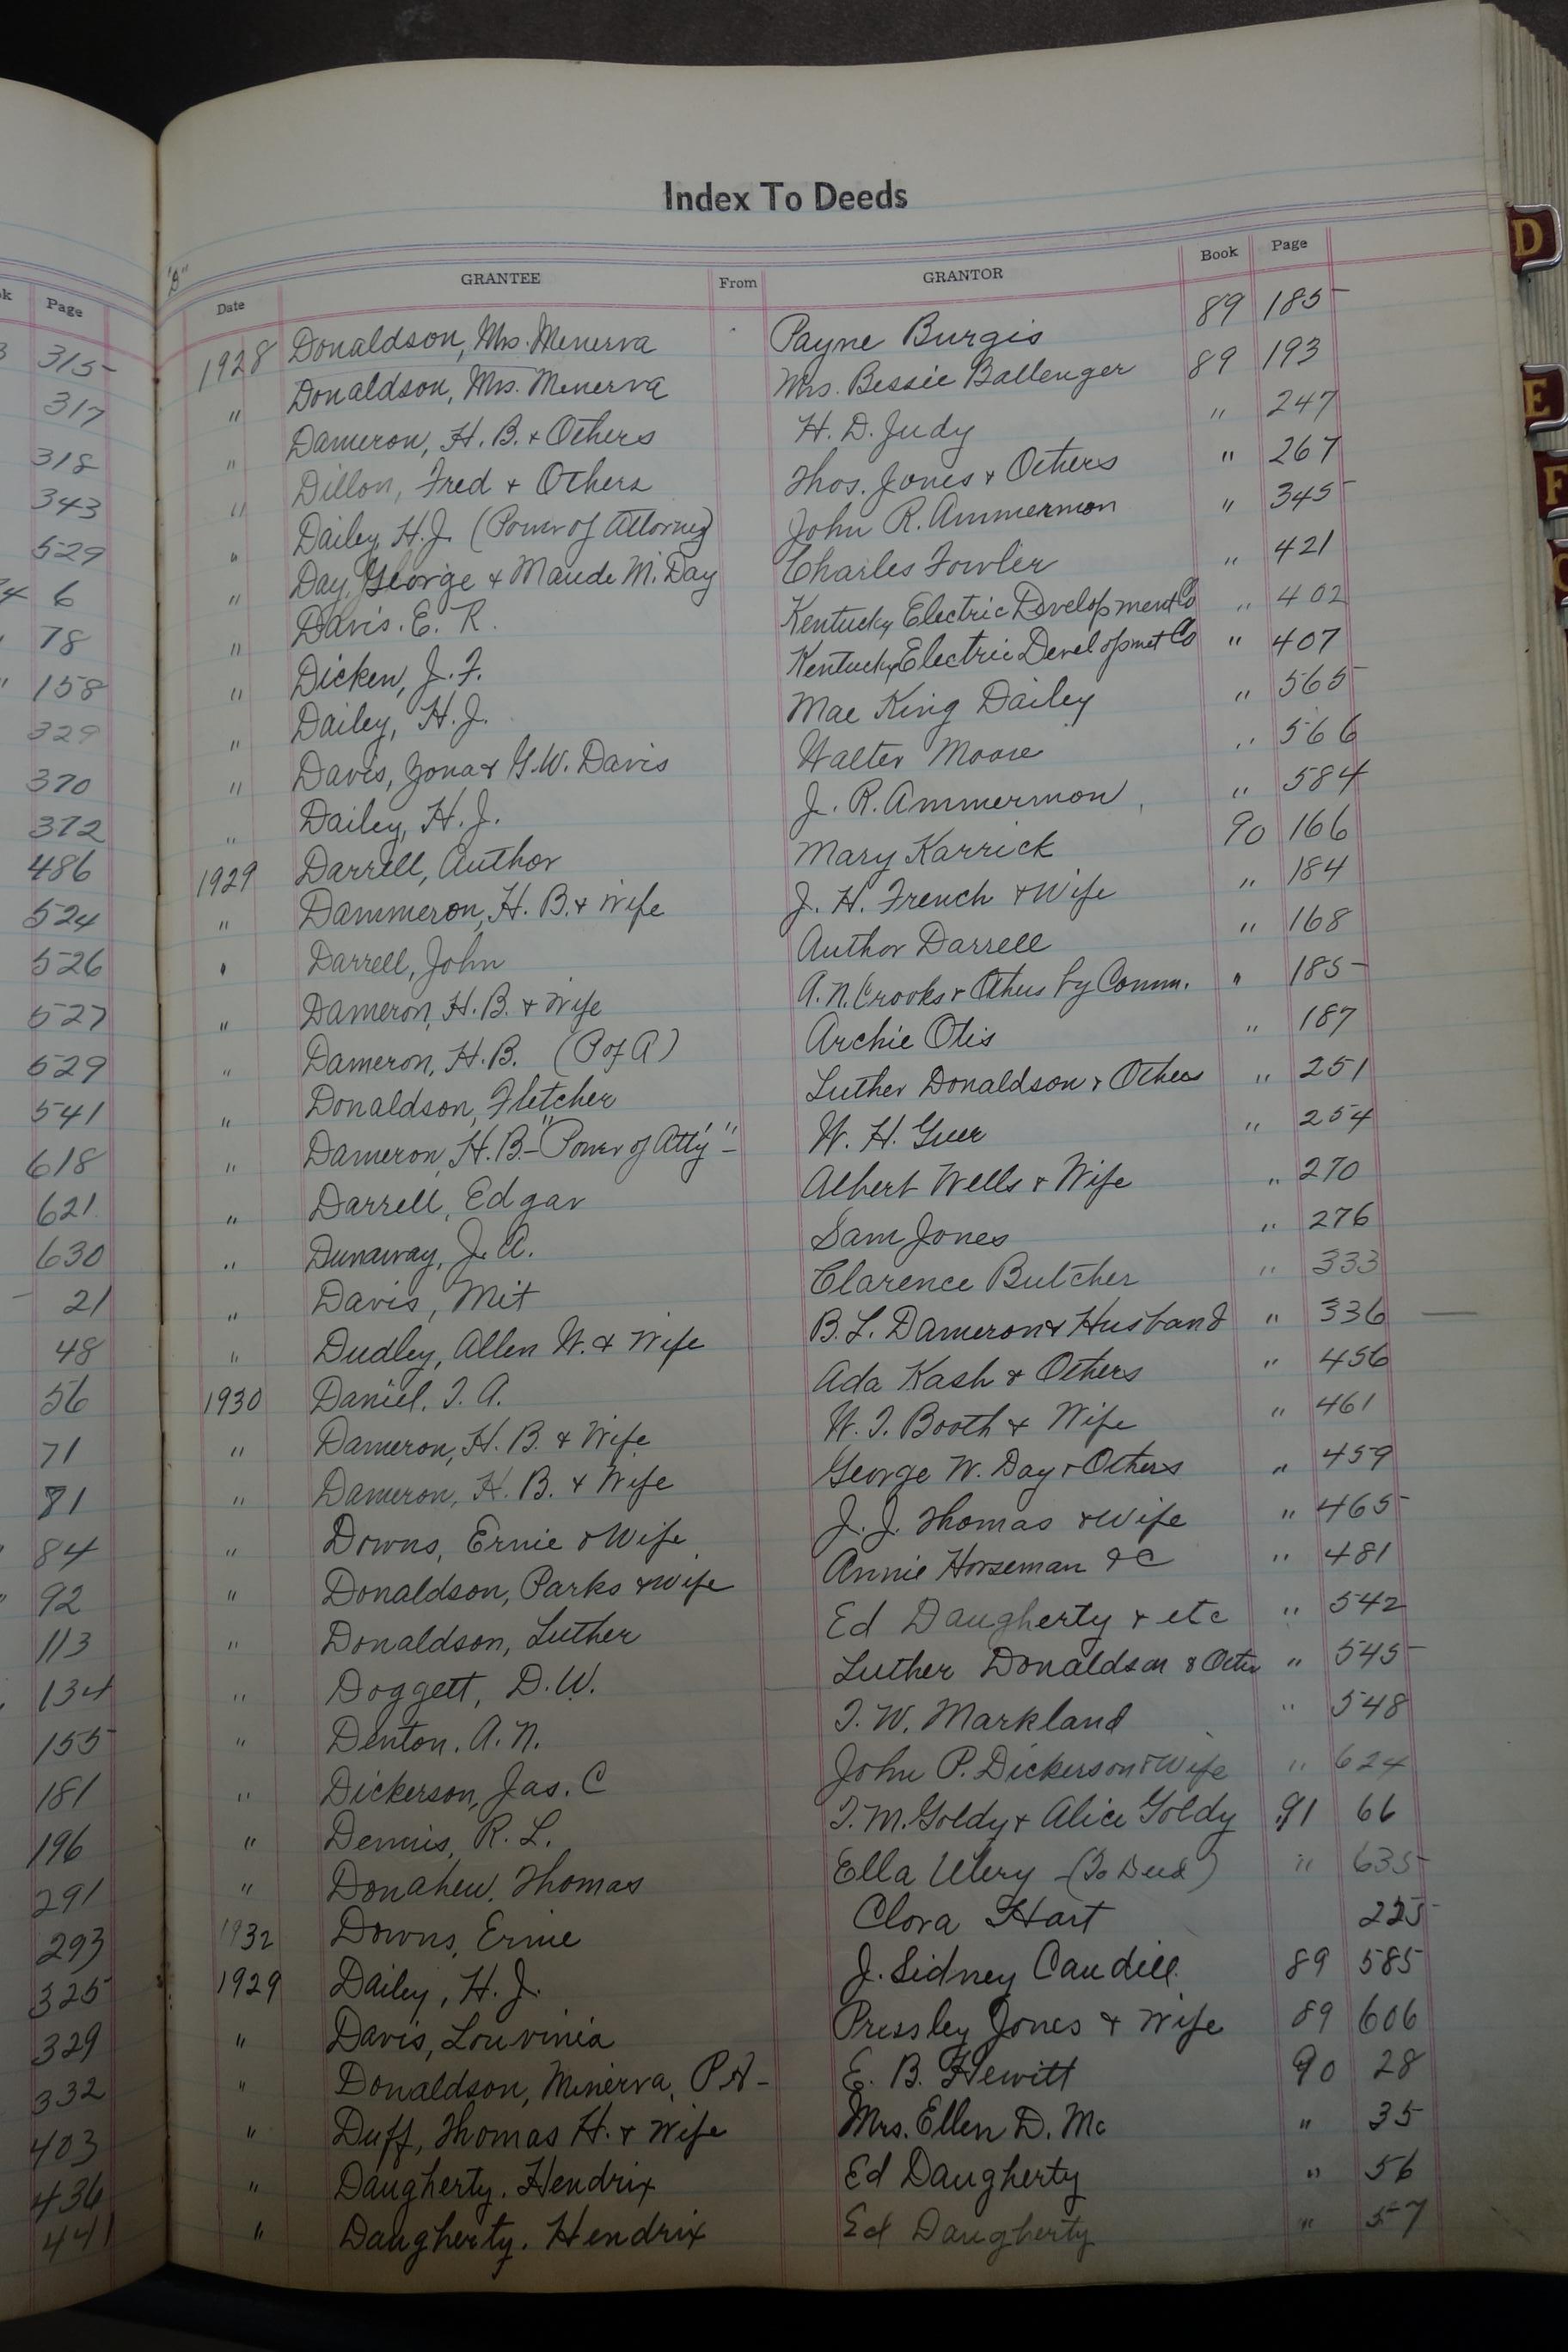 Index To Deeds
"D"
k Page
Date GRANTEE From GRANTOR Book Page
3 315
317
318
343
529
6
78
" 158
329
370
372
486
524
526
527
529
541
618
621
630
21
48
56
71
81
84
92
113
134
155
181
196
291
293
325
329
332
403
436
441
1928 Donaldson, Mrs. Menerva Payne Burgis 89 185
" Donaldson, Mrs. Menerva Mrs. Bessie Ballenger 89 193
" Dameron, H. B. + Others H. D. Judy " 247
" Dillon, Fred + Others Thos. Jones + Others " 267
" Dailey, H. J. (Power of Attorney) John R. Ammermon " 345
" Day, George + Maude M. Day Charles Fowler " 421
" Davis. E. R. Kentucky Electric Development Co " 402
" Dicken, J. F. Kentucky Electric Developmet Co " 407
" Dailey, H. J. Mae King Dailey " 565
" Davis, Zona + G. W. Davis Walter Moore " 566
" Dailey, H. J. J. R. Ammermon " 584
1929 Darrell, Author Mary Karrick 90 166
" Dammeron, H. B. + Wife J. H. French + Wife " 184
" Darrell, John Author Darrell " 168
" Dameron, H. B. + Wife A. N. Crooks + Others by Comm. " 185
" Dameron, H. B. (P of A) Archie Otis " 187
" Donaldson, Fletcher Luther Donaldson + Others " 251
" Dameron, H. B. - "Power of Atty" - W. H. Greer " 254
" Darrell, Edgar Albert Wells + Wife " 270
" Dunaway, J. A. Sam Jones " 276
" Davis, Mit Clarence Butcher " 333
" Dudley, Allen W. + Wife B. L. Dameron + Husband " 336
1930 Daniel. T. A. Ada Kash + Others " 456
" Dameron, H. B. + Wife W. T. Booth + Wife " 461
" Dameron, H. B. + Wife George W. Day + Others " 459
" Downs, Ernie + Wife J. J. Thomas + Wife " 465
" Donaldson, Parks + Wife Annie Horseman & C " 481
" Donaldson, Luther Ed Daugherty + etc " 542
" Doggett, D. W. Luther Donaldson & " 545
" Denton. A. N. T. W. Markland " 548
" Dickerson, Jas. C John P. Dickerson + Wife " 624
" Dennis, R. L. T. M. Goldy + Alice Goldy 91 66
" Donahew, Thomas Ella Ulery - (To Deed) " 635
1932 Downs, Ernie Clora Hart 225
1929 Dailey, H. J. J. Sidney Caudill. 89 585
" Davis, Louvinia Pressley Jones + Wife 89 606
" Donaldson, Minerva, P A - E. B. Hewitt 90 28
" Duff, Thomas H. + Wife Mrs. Ellen D. Mc " 35
" Daugherty. Hendrix Ed Daugherty " 56
" Daugherty. Hendrix Ed Daugherty " 57
D
E
F